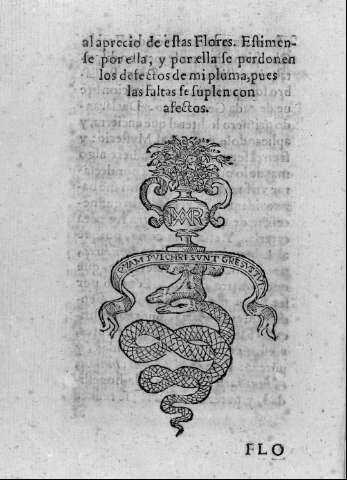 al aprecio de estas Flores. Estimen-
se por ella, y por ella se perdonen
los defectos de mi pluma, pues
las faltas se suplen con
afectos.
MAR
QVAM PVLCHRI SVNT GRESVS TVI
FLO